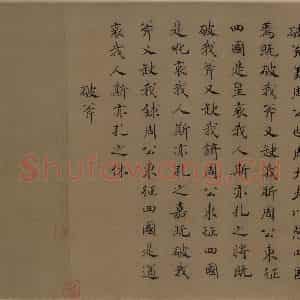 破斧美周公也周大夫以惡四國
焉既破我斧又缺我斨周公東征
四國是皇哀我人斯亦孔之將既
破我斧又缺我錡周公東征四國
是吪哀我人斯亦孔之嘉既破我
斧又缺我銶周公東征四國是遒
哀我人斯亦孔之休
破斧